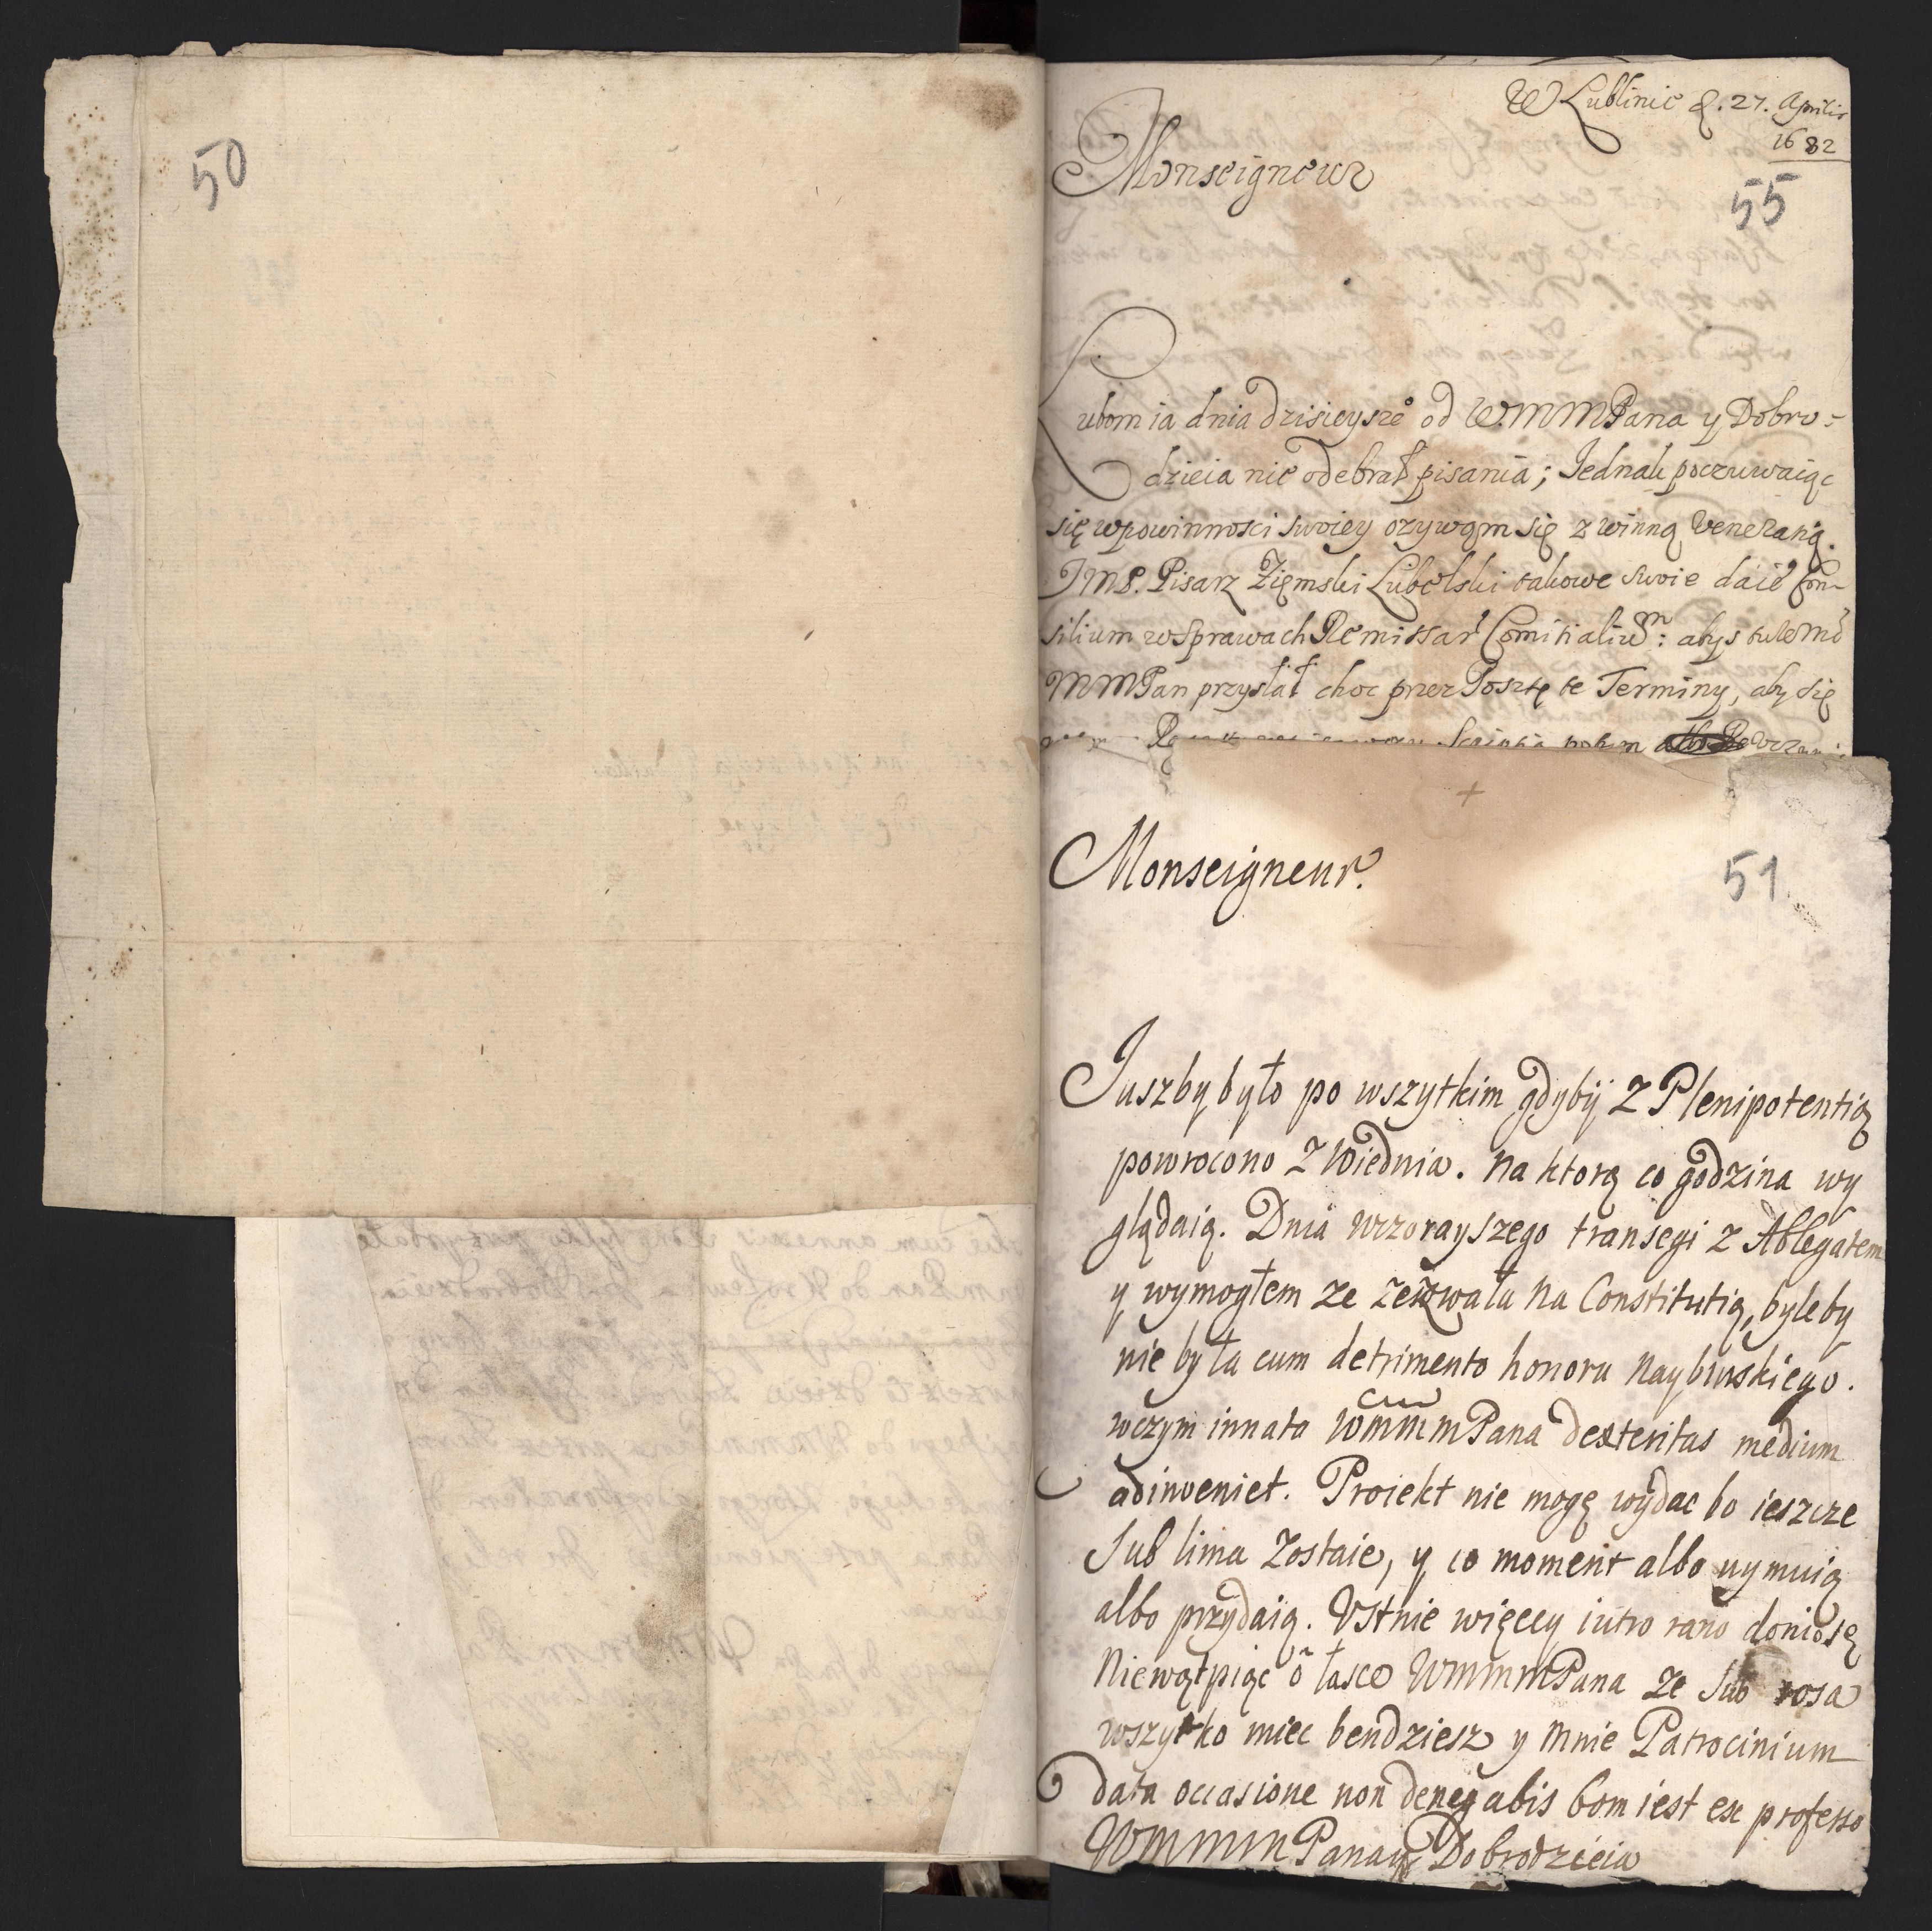 50
W Lublinie d. 27. Aprilis
1682
Monseigneur
55
Lubom ia dnia dzisieysze° od W.MMPana y Dobro=
dzieia nie odebrał pisania; Jednak poczuwaiąc
się wpowinnosci swoiey ozywam się z winną Veneratią.
JMP. Pisarz Zięmski Lubelski takowe swoie daie Con-
silium wsprawach Remissar Comitialium: abys
MMPan przysłał choc przez Posztę te Terminy, aby się
Scripta potym
Monseigneur.
51
Juszby było po wszytkim gdybÿ z Plenipotentią
powrocono z Wiednia. Na ktorą co godzina wy
glądaią. Dnia wczorayszego transegi z Ablegatem
y wymogłem ze zezwała na Constitutią, byleby
nie była cum detrimento honoru Nayburskiego.
wczym innata WMMMPana dexteritas medium
adinveniet. Proiekt nie mogę wÿdac bo ieszcze
Sub lima zostaie, y co moment albo uymuią
albo przydaią. Ustnie więcey iutro rano doniosę
Niewątpiąc o łasce WMMMPana ze Sub rosa
wszytko miec bendziesz y mnie Patrocinium
data occasione non denegabis bom iest ex professo
WMMMPana y Dobrodzieia